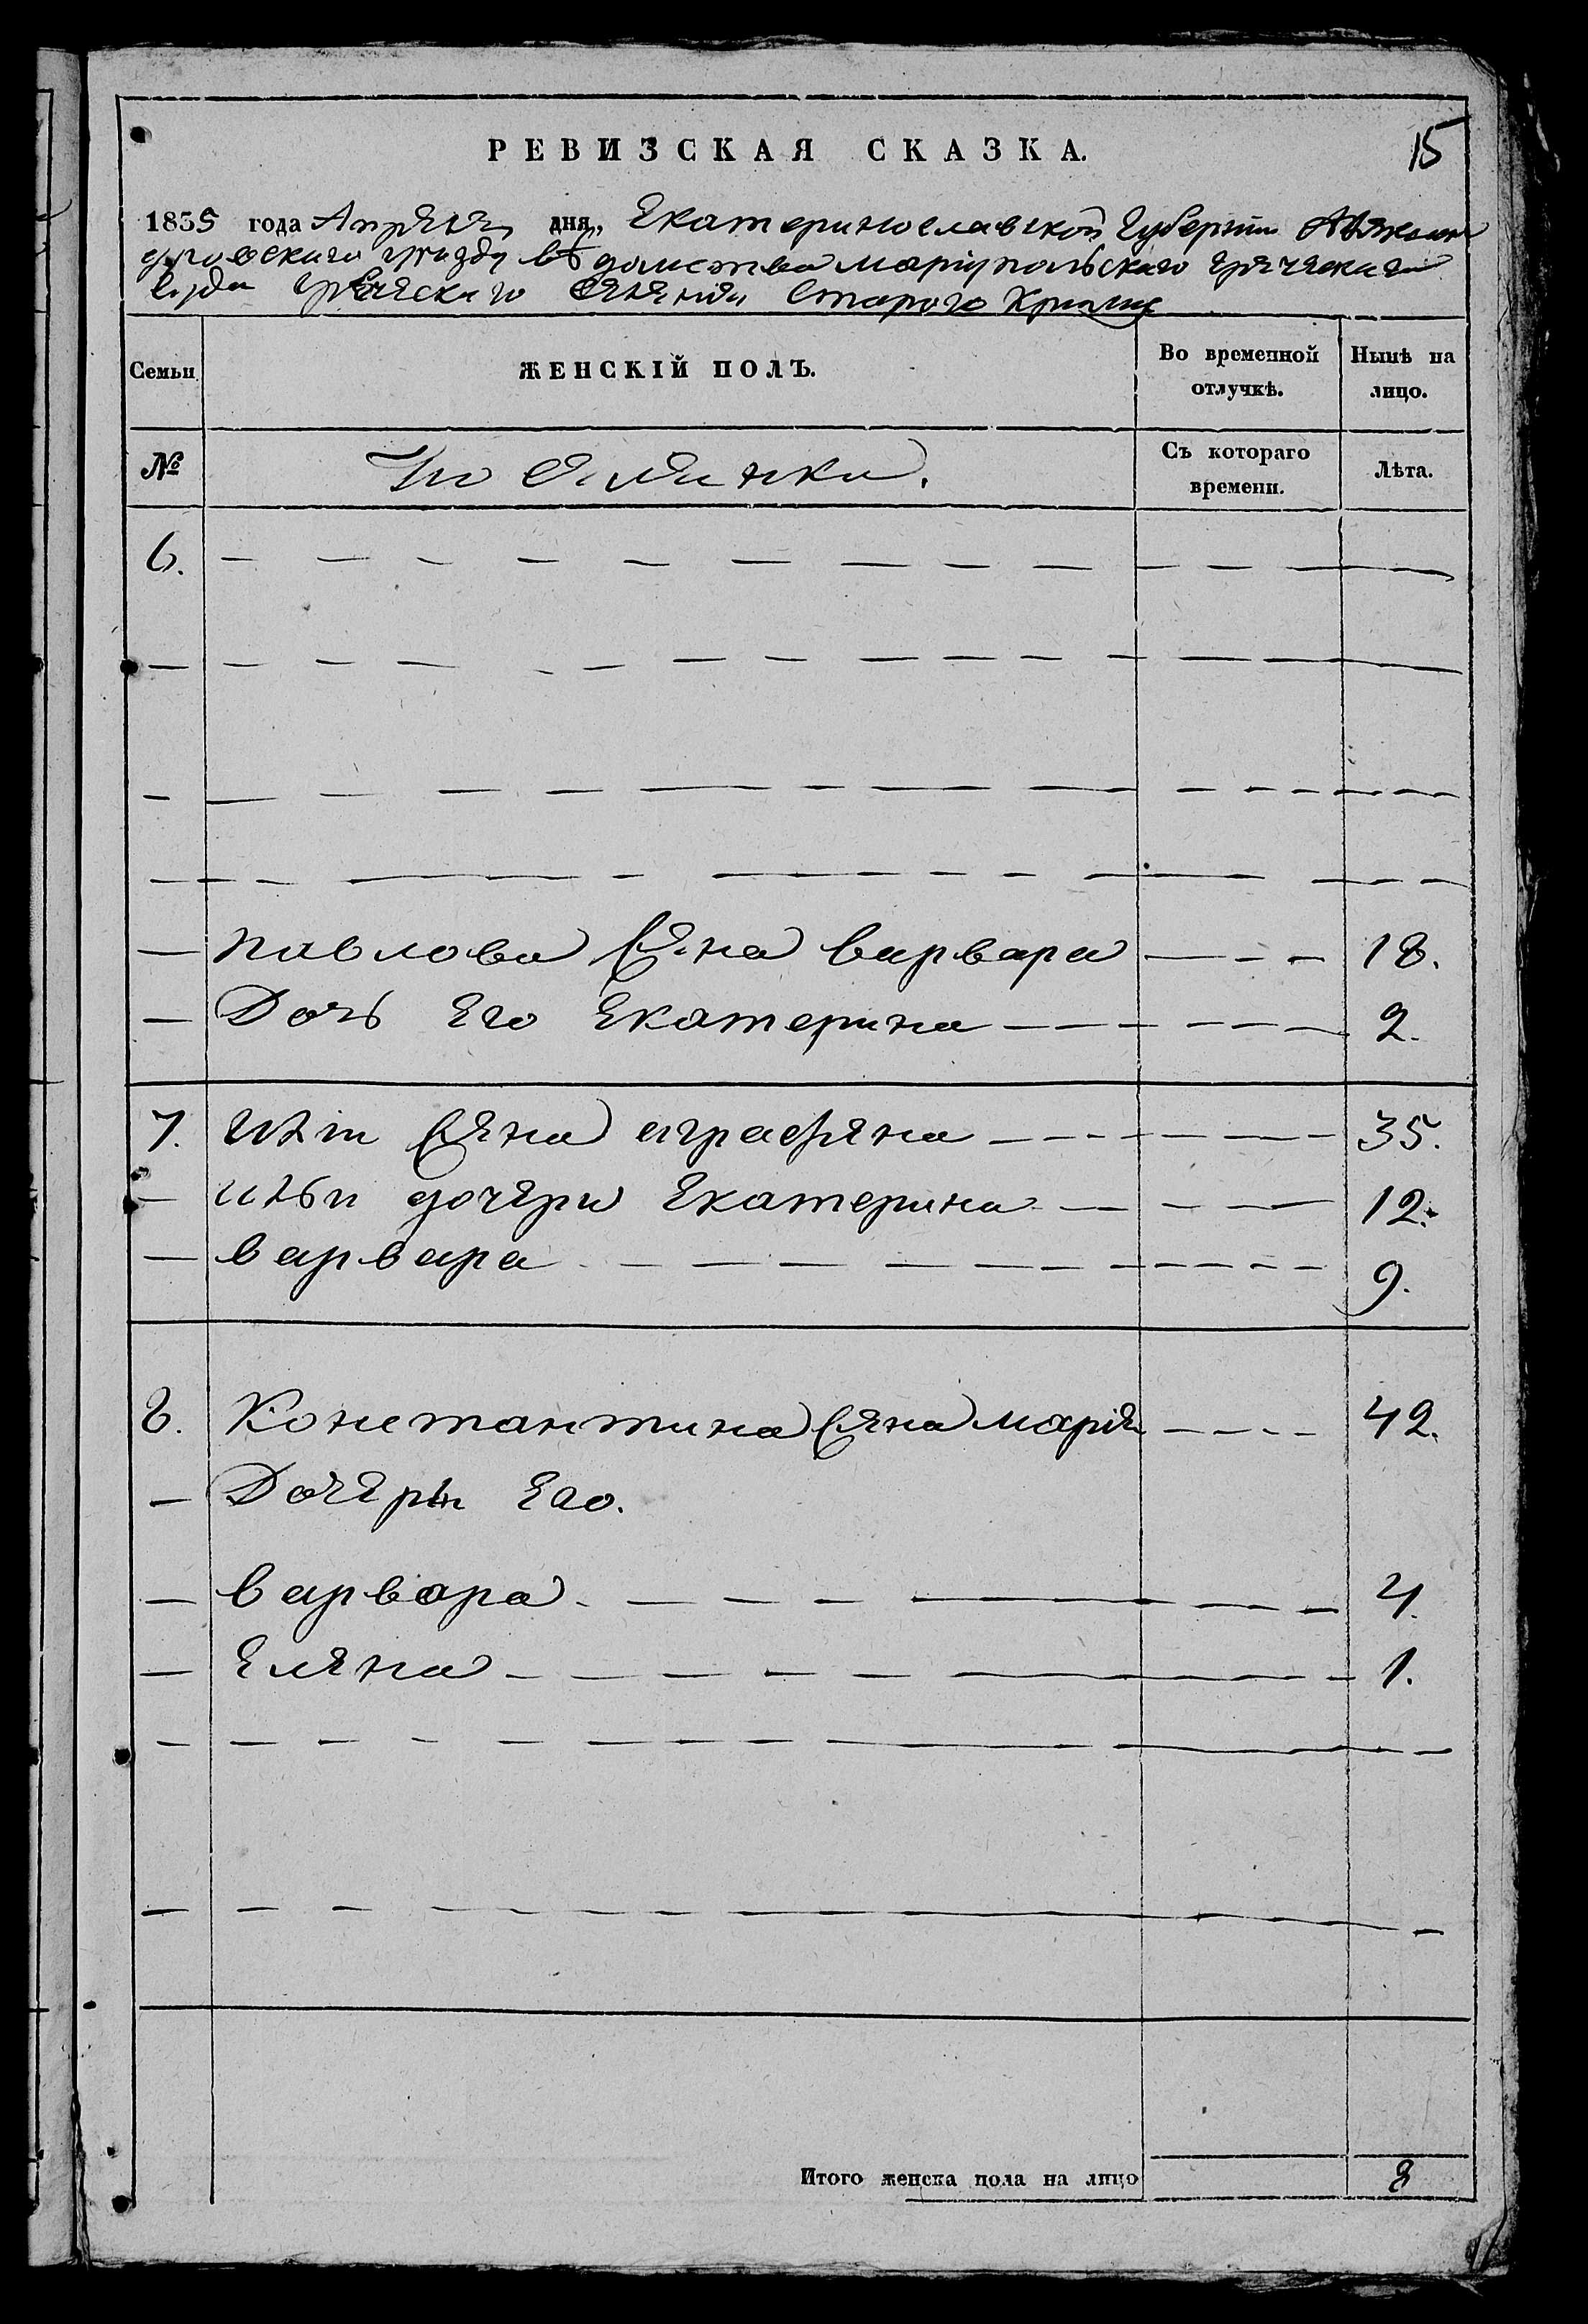 РЕВИЗСКАЯ СКАЗКА.
15
1835 года Апреля дня, Екатеринославской Губернии Алексан
дровского уезду вѣдомства мариупольскаго греческаго
суда греческаго селения Старого Крима
Семьи
ЖЕНСКІЙ ПОЛЪ.
Во временной отлучкѣ.
Нынѣ на лицо.
№
Поселянки.
Съ котораго времени.
Лѣта.
6. — — — — — — — — —
— — — — — — — — —
— — — — — — — — —
— — — — — — — — —
— павлова жена варвара — — — 18.
— Дочь Его Екатерина — — — 2.
7. жена аграфена — — — 35.
— дочери Екатерина — — — 12.
— варвара — — — 9.
8. Константина жена мария — — — 42.
— Дочери Его.
— варвара — — — 4.
— Елена — — — 1.
— — — — — — — — —
— — — — — — — — —
Итого женска пола на лицо 8